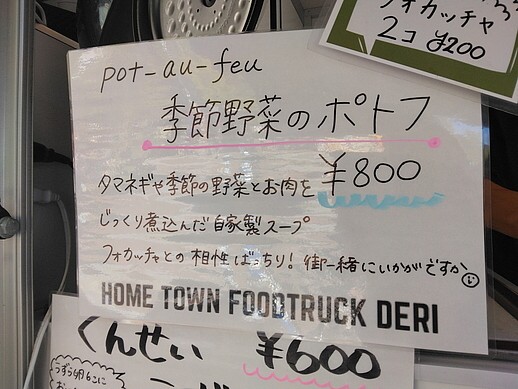 フォカッチャ
2コ ¥200
pot-au-feu
季節野菜のポトフ
¥800
タマネギや季節の野菜とお肉を
じっくり煮込んだ自家製スープ
フォカッチャとの相性ばっちり！御一緒にいかがですか
HOME TOWN FOODTRUCK DERI
くんせい
¥600